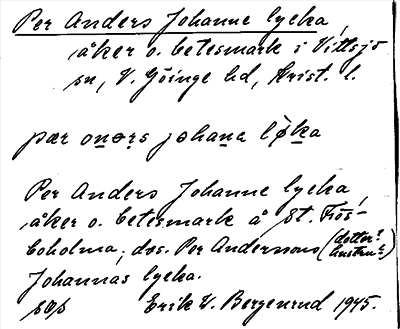 Per Anders Johanne lycka,
åker o. betesmark i Vittsjö
sn, V. Göinge hd, Krist. l.
pær onərs johana løka
Per Anders Johanne lycka,
åker o. betesmark å St. Frös-
boholma, dvs. Per Anderssons (dotter?
hustru?)
Johannas lycka.
Erik W. Bergenrud 1945.